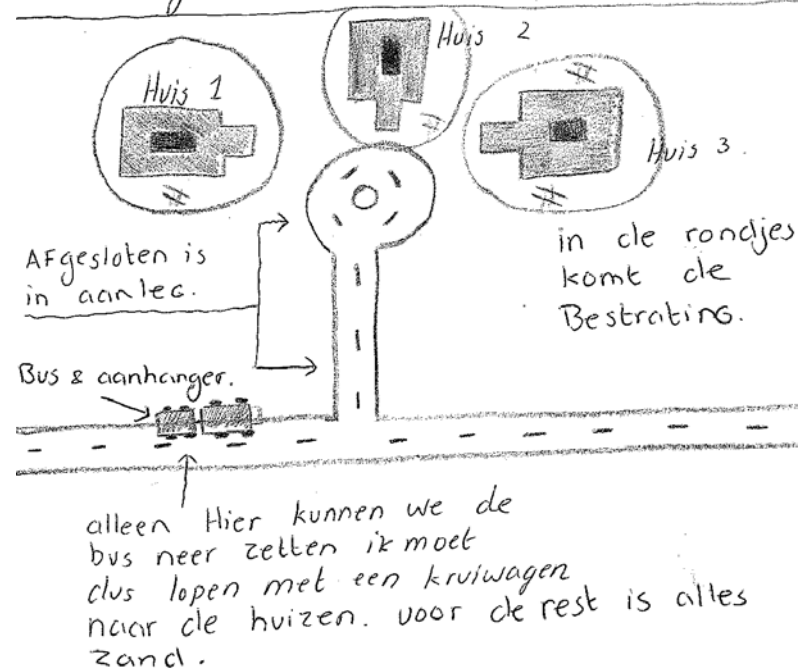 Huis 1
Huis 2
Huis 3.
AFgesloten is
in aanleg.
in de rondjes
komt de
Bestrating.
Bus & aanhanger.
alleen Hier kunnen we de
bus neer zetten ik moet
dus lopen met een kruiwagen
naar de huizen. voor de rest is alles
zand.